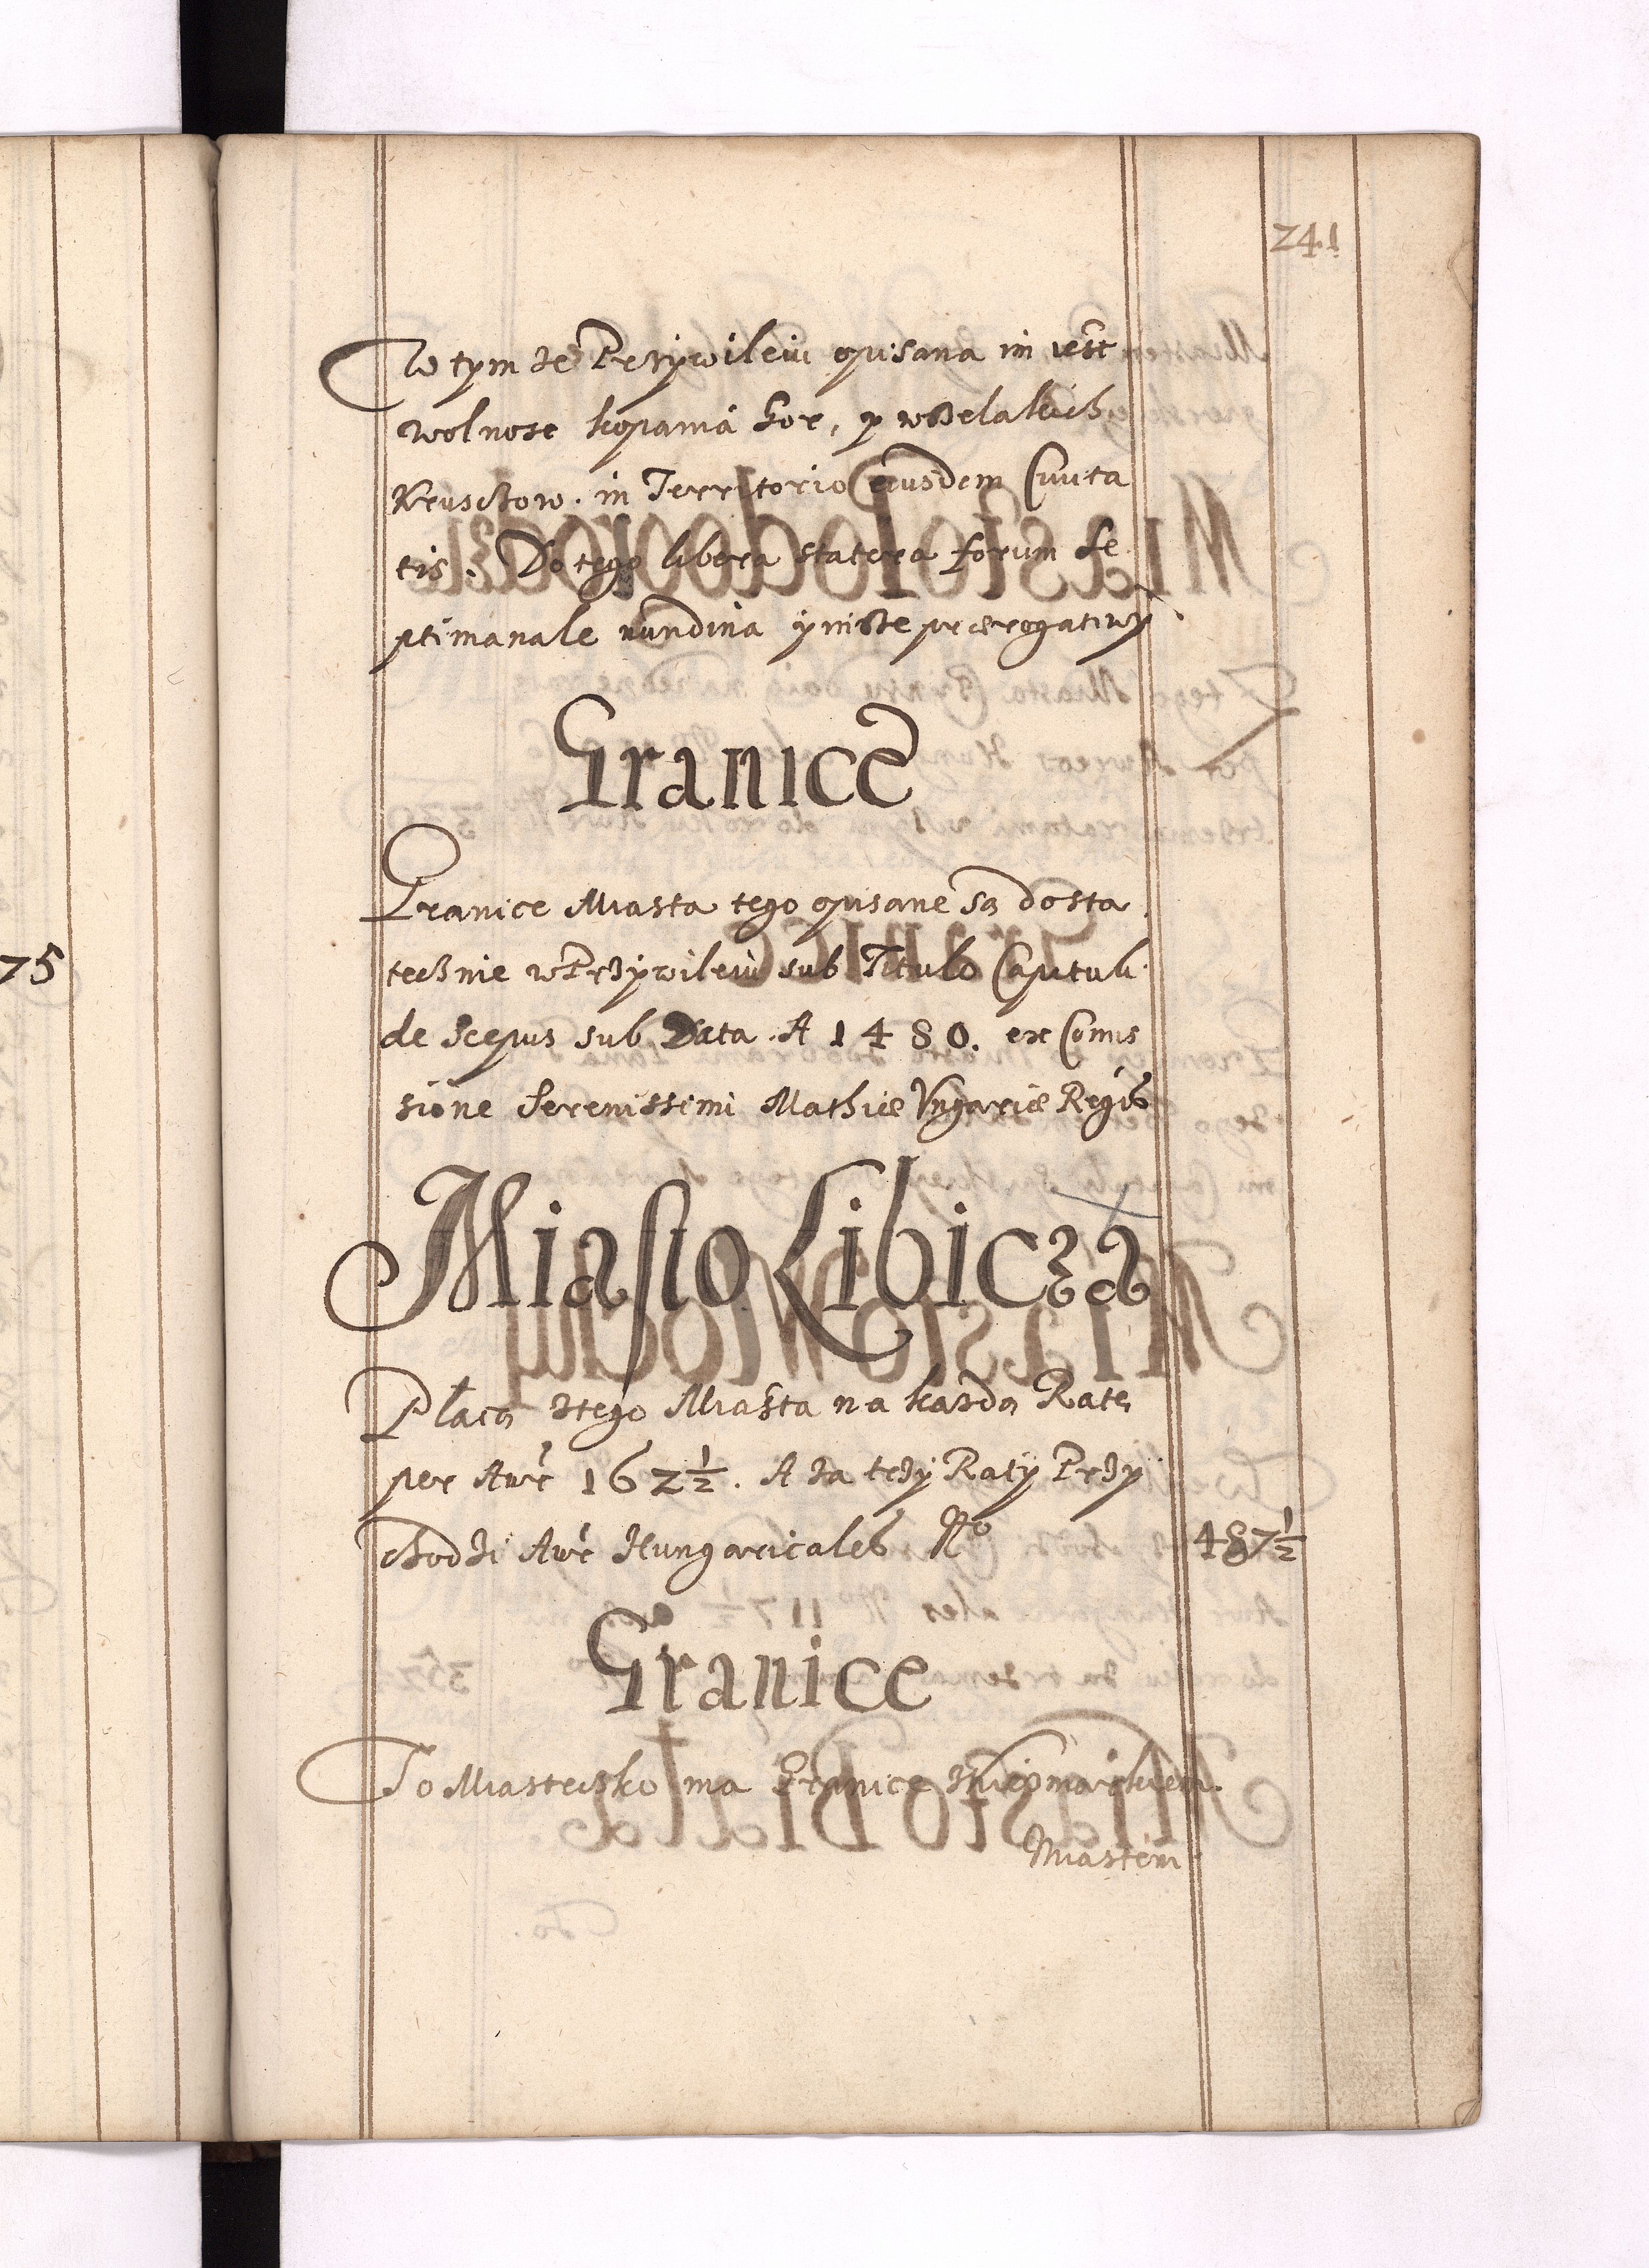 241
W tym że Przywileiu opisana im iest
wolnosc kopania Gor, y wszelakich
Kruschow. in Territorio eiusdem Ciuita
tis. Do tego libera statera forum se
ptimanale nundina y insze prærogatiwy
Granice
Granice Miasta tego opisane są dosta
tecznie w Przywileiu sub Titulo Capituli
de Scepus sub Data. A 1480. ex Comis
sione Serenissimi Mathiæ Vngariæ Regis
Miasto Libicza
Płacą z tego Miasta na kazdą Ratę
per Aur 162½. A za trzy Raty Przy
chodzi Aur Hungaricales No 487½
Granice
To Miasteczko ma Granice z Kiezmarkiem.
Miastem
75